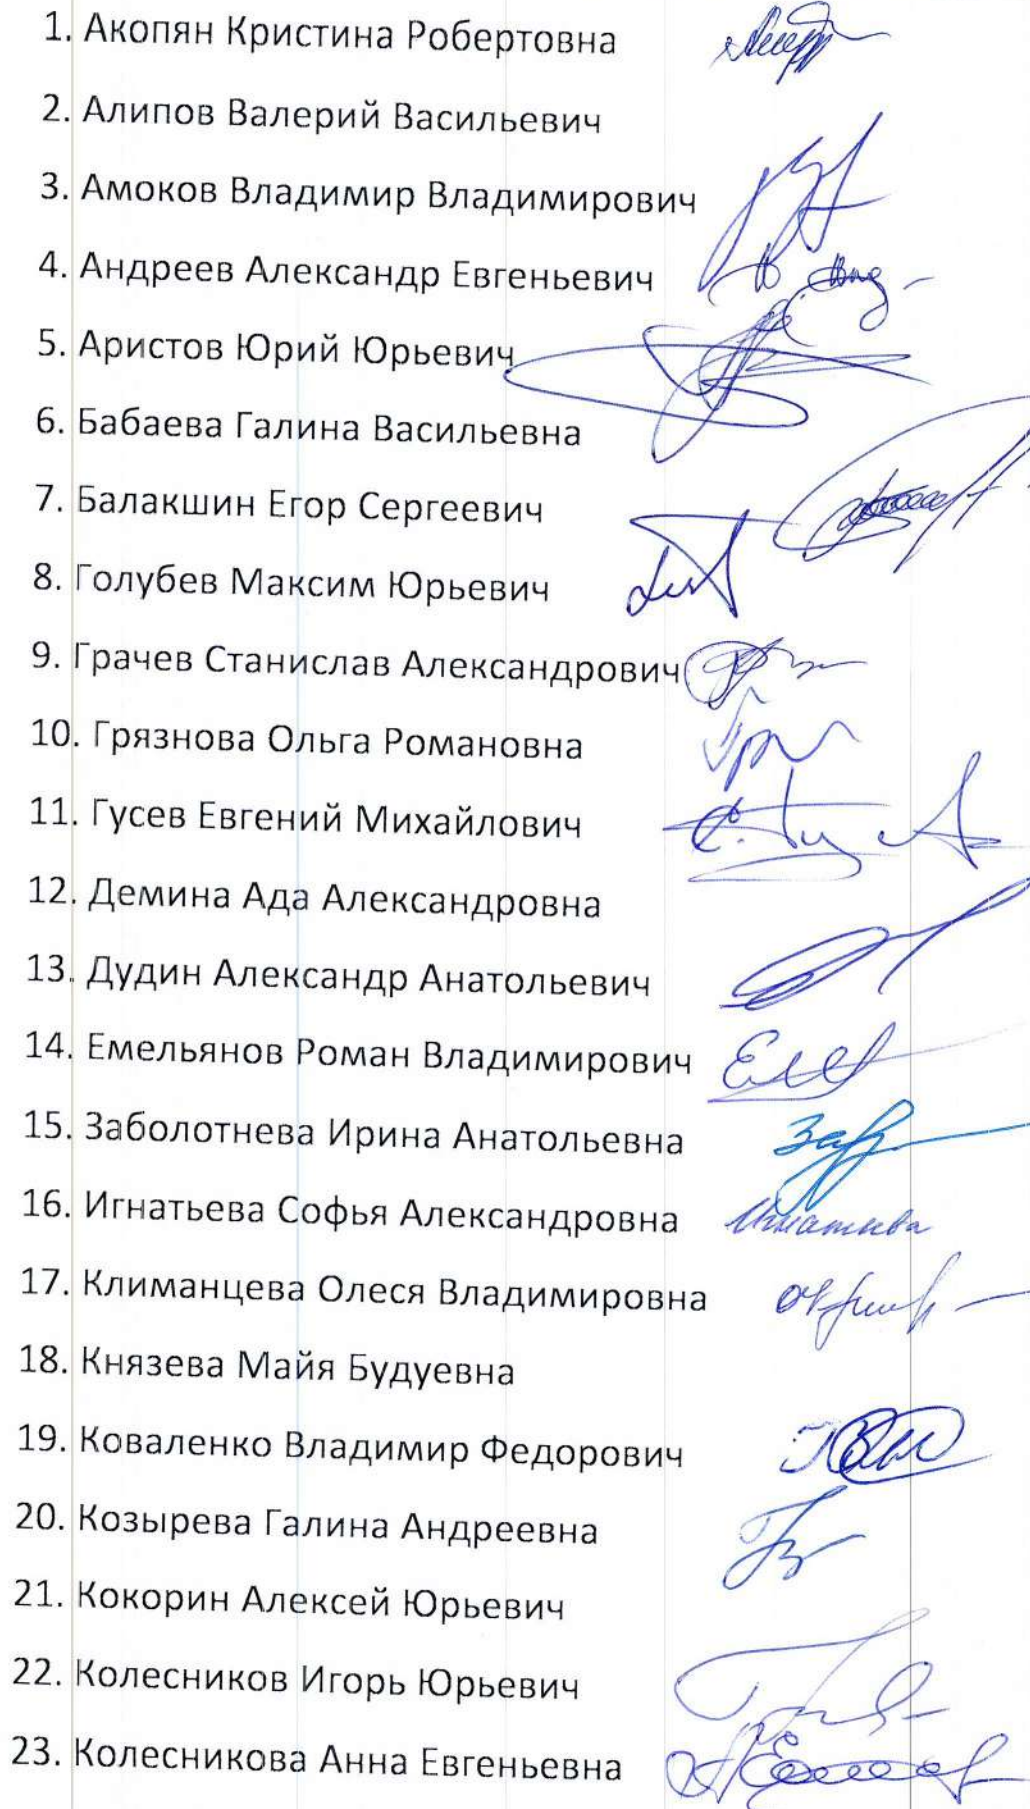 1. Акопян Кристина Робертовна
2. Алипов Валерий Васильевич
3. Амоков Владимир Владимирович
4. Андреев Александр Евгеньевич
5. Аристов Юрий Юрьевич
6. Бабаева Галина Васильевна
7. Балакшин Егор Сергеевич
8. Голубев Максим Юрьевич
9. Грачев Станислав Александрович
10. Грязнова Ольга Романовна
11. Гусев Евгений Михайлович
12. Демина Ада Александровна
13. Дудин Александр Анатольевич
14. Емельянов Роман Владимирович
15. Заболотнева Ирина Анатольевна
16. Игнатьева Софья Александровна Игнатьева
17. Климанцева Олеся Владимировна
18. Князева Майя Будуевна
19. Коваленко Владимир Федорович
20. Козырева Галина Андреевна
21. Кокорин Алексей Юрьевич
22. Колесников Игорь Юрьевич
23. Колесникова Анна Евгеньевна